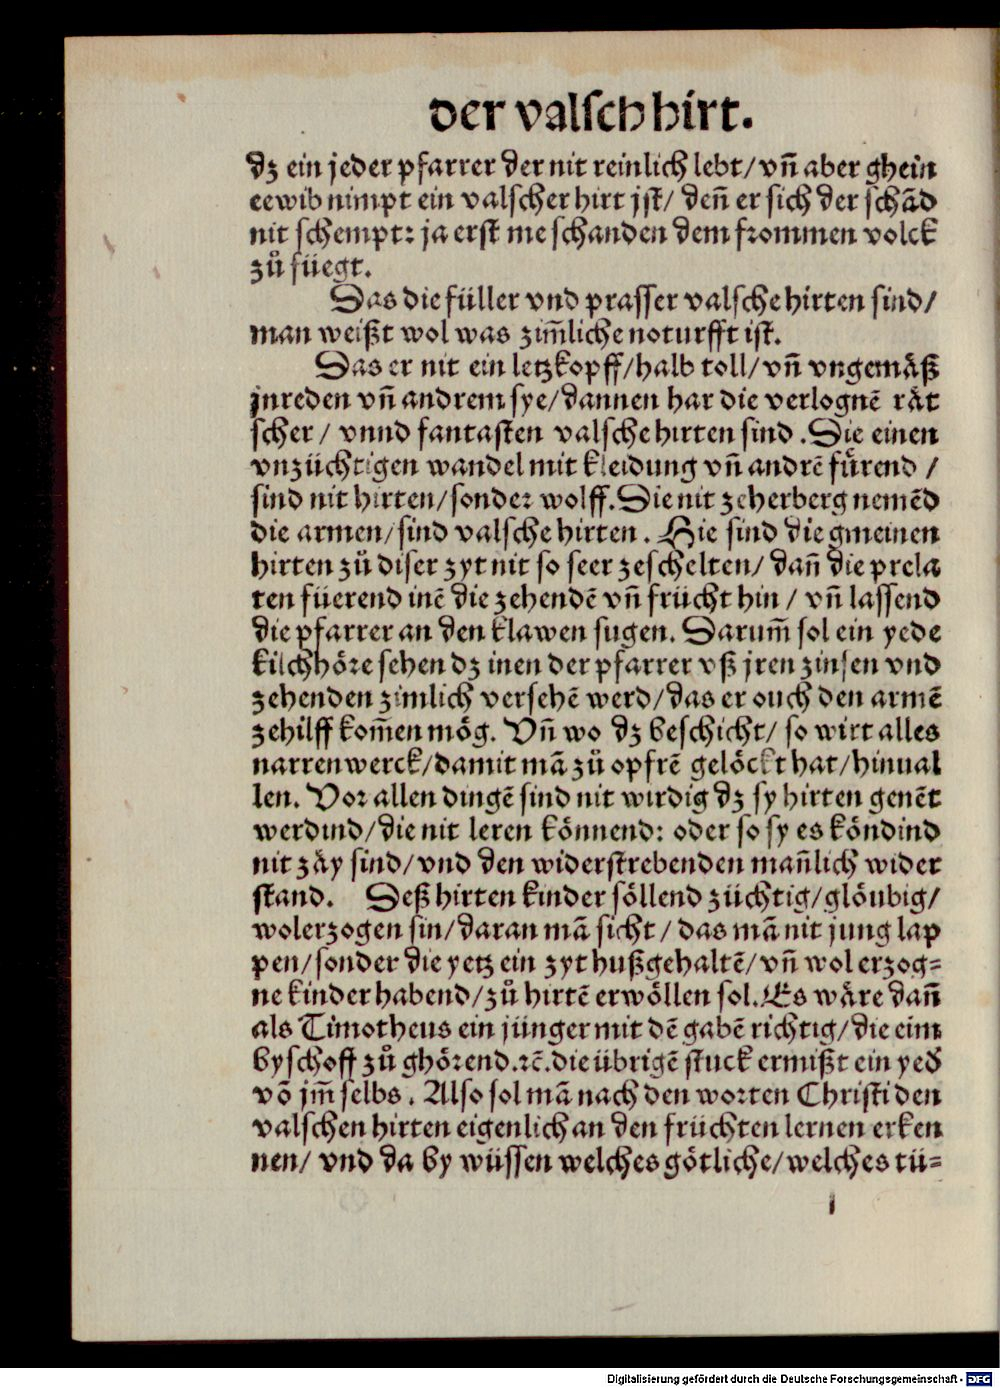 der valsch hirt.
dz ein jeder pfarrer der nit reinlich lebt/ vñ aber ghein
eewib nimpt ein valscher hirt jst/ deñ er sich der schãd
nit schempt: ja erst me schanden dem frommen volck
zů füegt.
Das die füller vnd prasser valsche hirten sind/
man weißt wol was zim̃liche noturfft ist.
Das er nit ein letzkopff/halb toll/ vñ vngemäß
jnreden vñ andrem sye/dannen har die verlognẽ rät
scher/ vnnd fantasten valsche hirten sind. Die einen
vnzüchtigen wandel mit kleidung vñ andrẽ fůrend/
sind nit hirten/sonder wolff. Die nit zeherberg nemẽd
die armen/sind valsche hirten. Hie sind die gmeinen
hirten zů diser zyt nit so seer zeschelten/ dañ die prela
ten füerend inẽ die zehendẽ vñ frücht hin/ vñ lassend
die pfarrer an den klawen sugen. Darum̃ sol ein yede
kilchhöre sehen dz inen der pfarrer vß jren zinsen vnd
zehenden zimlich versehẽ werd/das er ouch den armẽ
zehilff kom̃en mög. Vñ wo dz beschicht/ so wirt alles
narrenwerck/damit mã zů opfrẽ gelöckt hat/hinual
len. Vor allen dingẽ sind nit wirdig dz sy hirten genẽt
werdind/die nit leren könnend: oder so sy es köndind
nit zäy sind/vnd den widerstrebenden mañlich wider
stand. Deß hirten kinder söllend züchtig/glöubig/
wolerzogen sin/daran mã sicht/ das mã nit jung lap
pen/sonder die yetz ein zyt hußgehaltẽ/vñ wol erzog=
ne kinder habend/zů hirtẽ erwöllen sol. Es wäre dañ
als Timotheus ein jünger mit dẽ gabẽ richtig/die eim
byschoff zů ghörend. ꝛc̃. die übrigẽ stuck ermißt ein yed
võ jm̃ selbs. Also sol mã nach den worten Christi den
valschen hirten eigenlich an den früchten lernen erken
nen/ vnd da by wüssen welches götliche/welches tü=
Digitalisierung gefördert durch die Deutsche Forschungsgemeinschaft - DFG